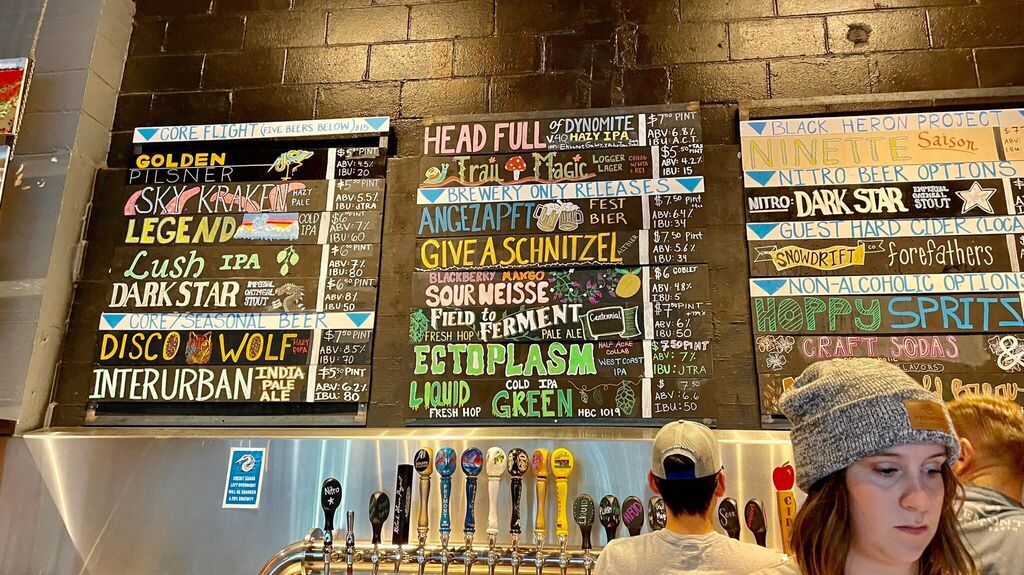 CORE FLIGHT (FIVE BEERS BELOW) $15
GOLDEN
PILSNER
ABV: 4.5%
IBU: 20
SKY KRAKEN HAZY PALE
ABV: 5.5%
IBU: JTRA
LEGEND COLD IPA
$6
ABV: 7%
IBU: 60
Lush IPA
$6
ABV: 7%
IBU: 80
DARK STAR IMPERIAL OATMEAL STOUT
ABV: 8%
IBU: 50
CORE/SEASONAL BEER
DISCO WOLF HAZY DIPA
$7.50 PINT
ABV: 8.5%
IBU: 70
INTERURBAN INDIA PALE ALE
$5.50 PINT
ABV: 6.2%
IBU: 80
HEAD FULL of DYNOMITE
V.40 HAZY IPA
PINT
ABV: 6.8%
Trail Magic LOGGER LAGER
ABV: 4.2%
IBU: 15
BREWERY ONLY RELEASES
ANGEZAPFT FEST BIER
$7.50 PINT
ABV: 6.4%
IBU: 34
GIVE A SCHNITZEL
$7.50 Pint
ABV: 5.6%
IBU: 34
BLACKBERRY MANGO
SOUR WEISSE
$6 GOBLET
ABV: 4.8%
IBU: 5
FIELD to FERMENT
FRESH HOP PALE ALE Centennial
ABV: 6%
ECTOPLASM HALF ACRE COLLAB WEST COAST IPA
$7.50 PINT
ABV: 7%
IBU: JTRA
LIQUID GREEN
FRESH HOP COLD IPA HBC 1019
$7.50
ABV: 6.6
IBU: 50
BLACK HERON PROJECT
NINETTE Saison
NITRO BEER OPTIONS
NITRO: DARK STAR IMPERIAL OATMEAL STOUT
GUEST HARD CIDER (LOCA
SNOWDRIFT forefathers
NON-ALCOHOLIC OPTIONS
HOPPY SPRITZ
CRAFT SODAS
FLAVORS
CREDIT CARDS
LEFT OVERNIGHT
WILL BE CHARGED
A 20% GRATUITY
Nitro